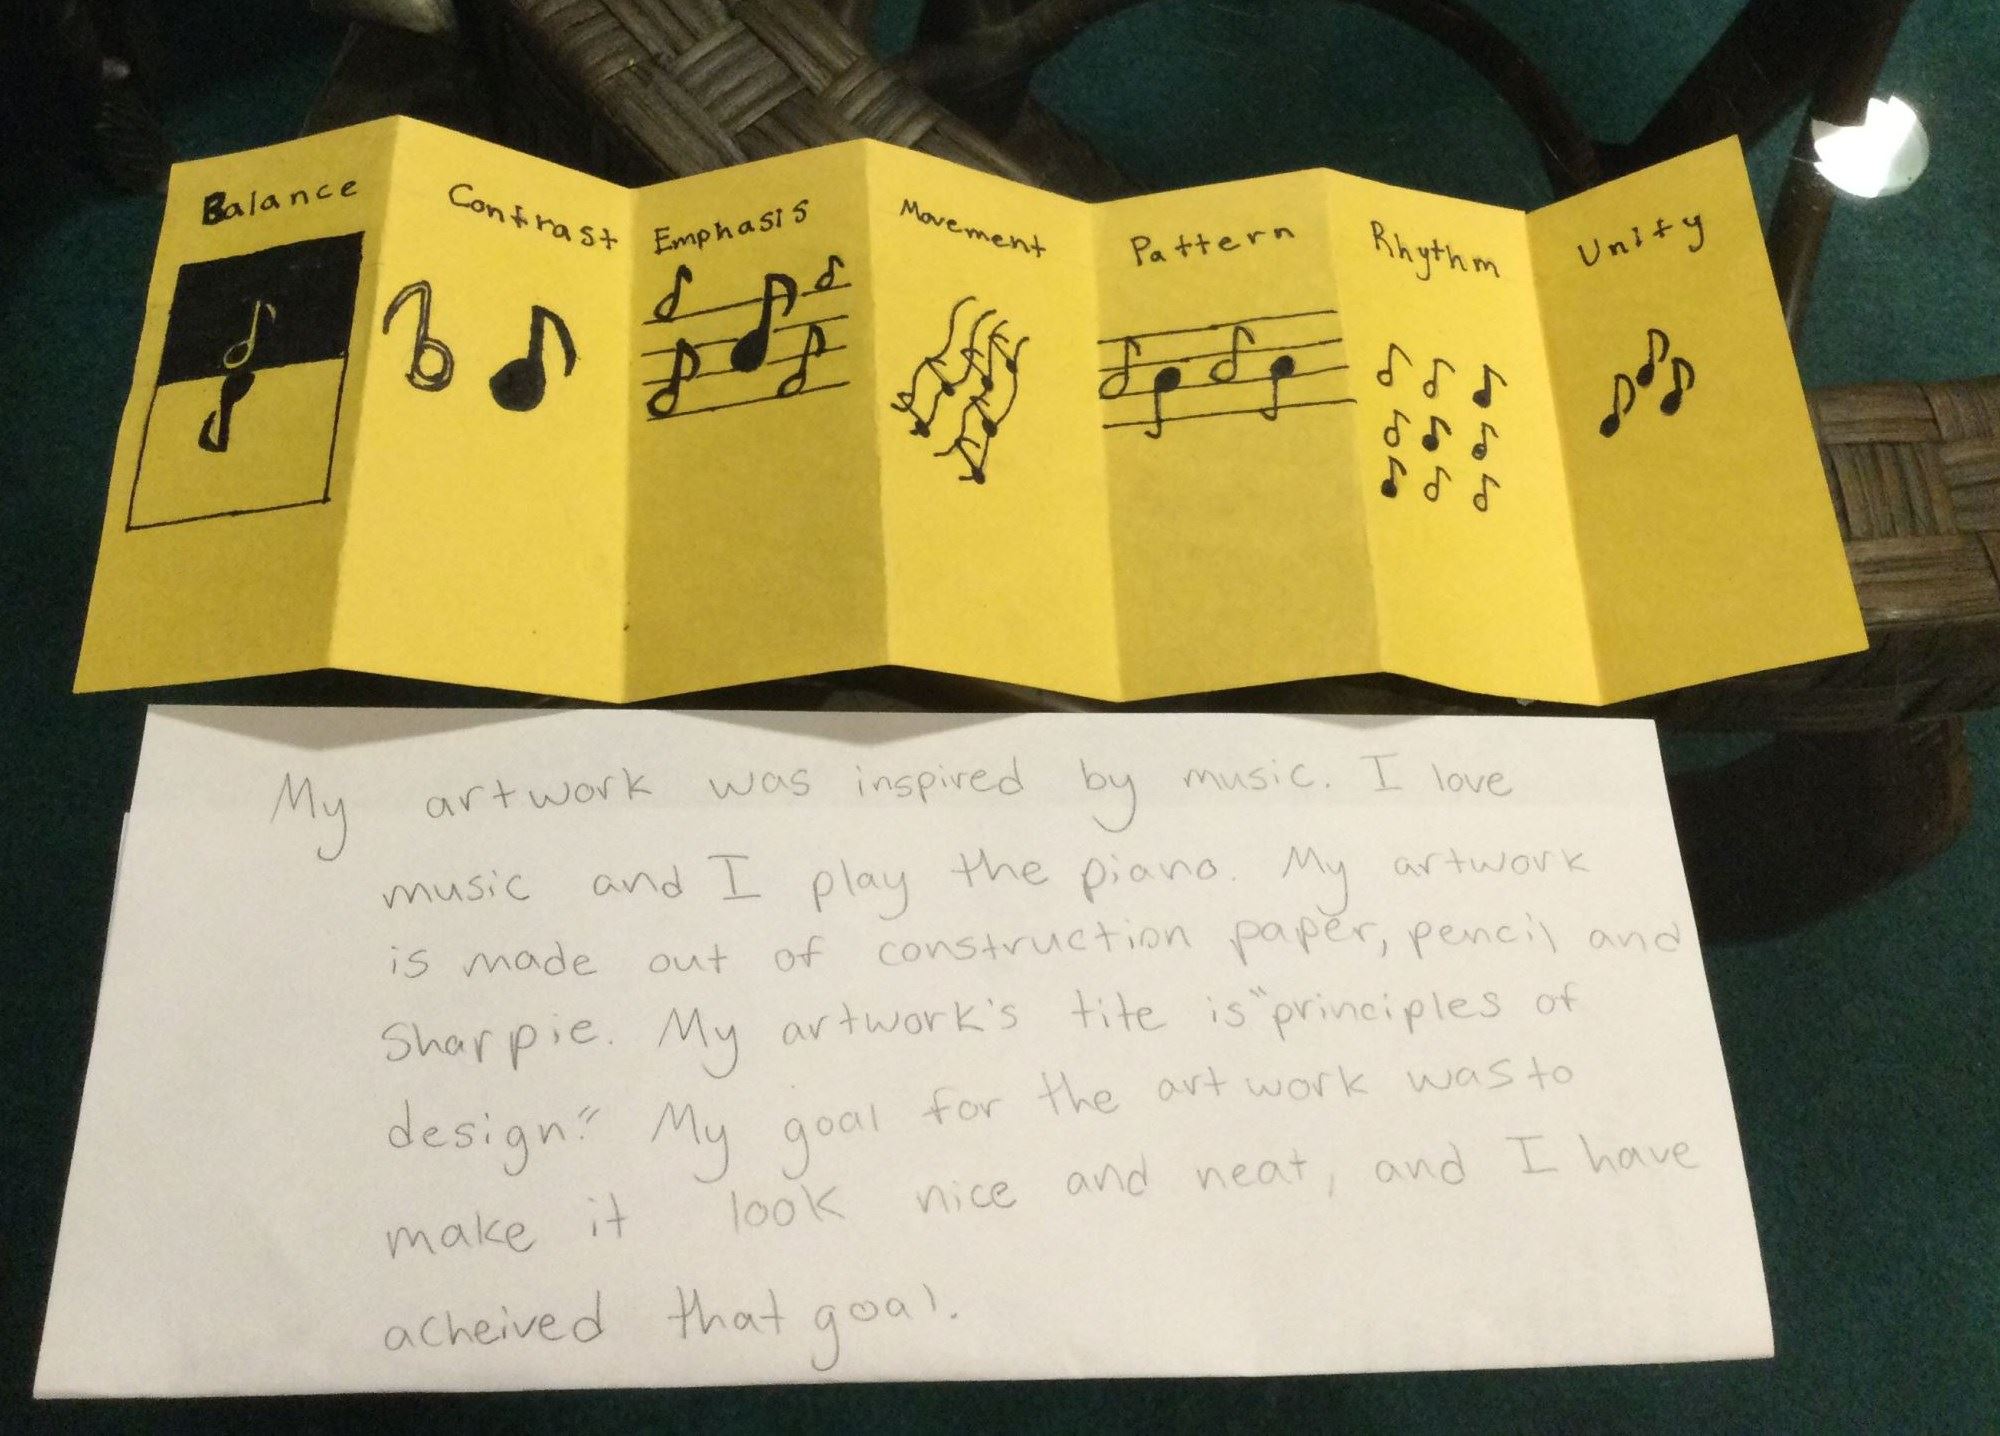 Balance
Contrast
Emphasis
Movement
Pattern
Rhythm
Unity
My artwork was inspired by music. I love
music and I play the piano. My artwork
is made out of construction paper, pencil and
Sharpie. My artwork's tite is "principles of
design." My goal for the artwork was to
make it look nice and neat, and I have
acheived that goal.